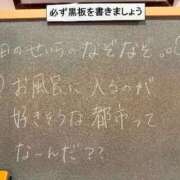 必ず黒板を書きましょう
日のせいらのなぞなぞ。
お風呂に入るのが
好きそうな都市って
なーんだ??